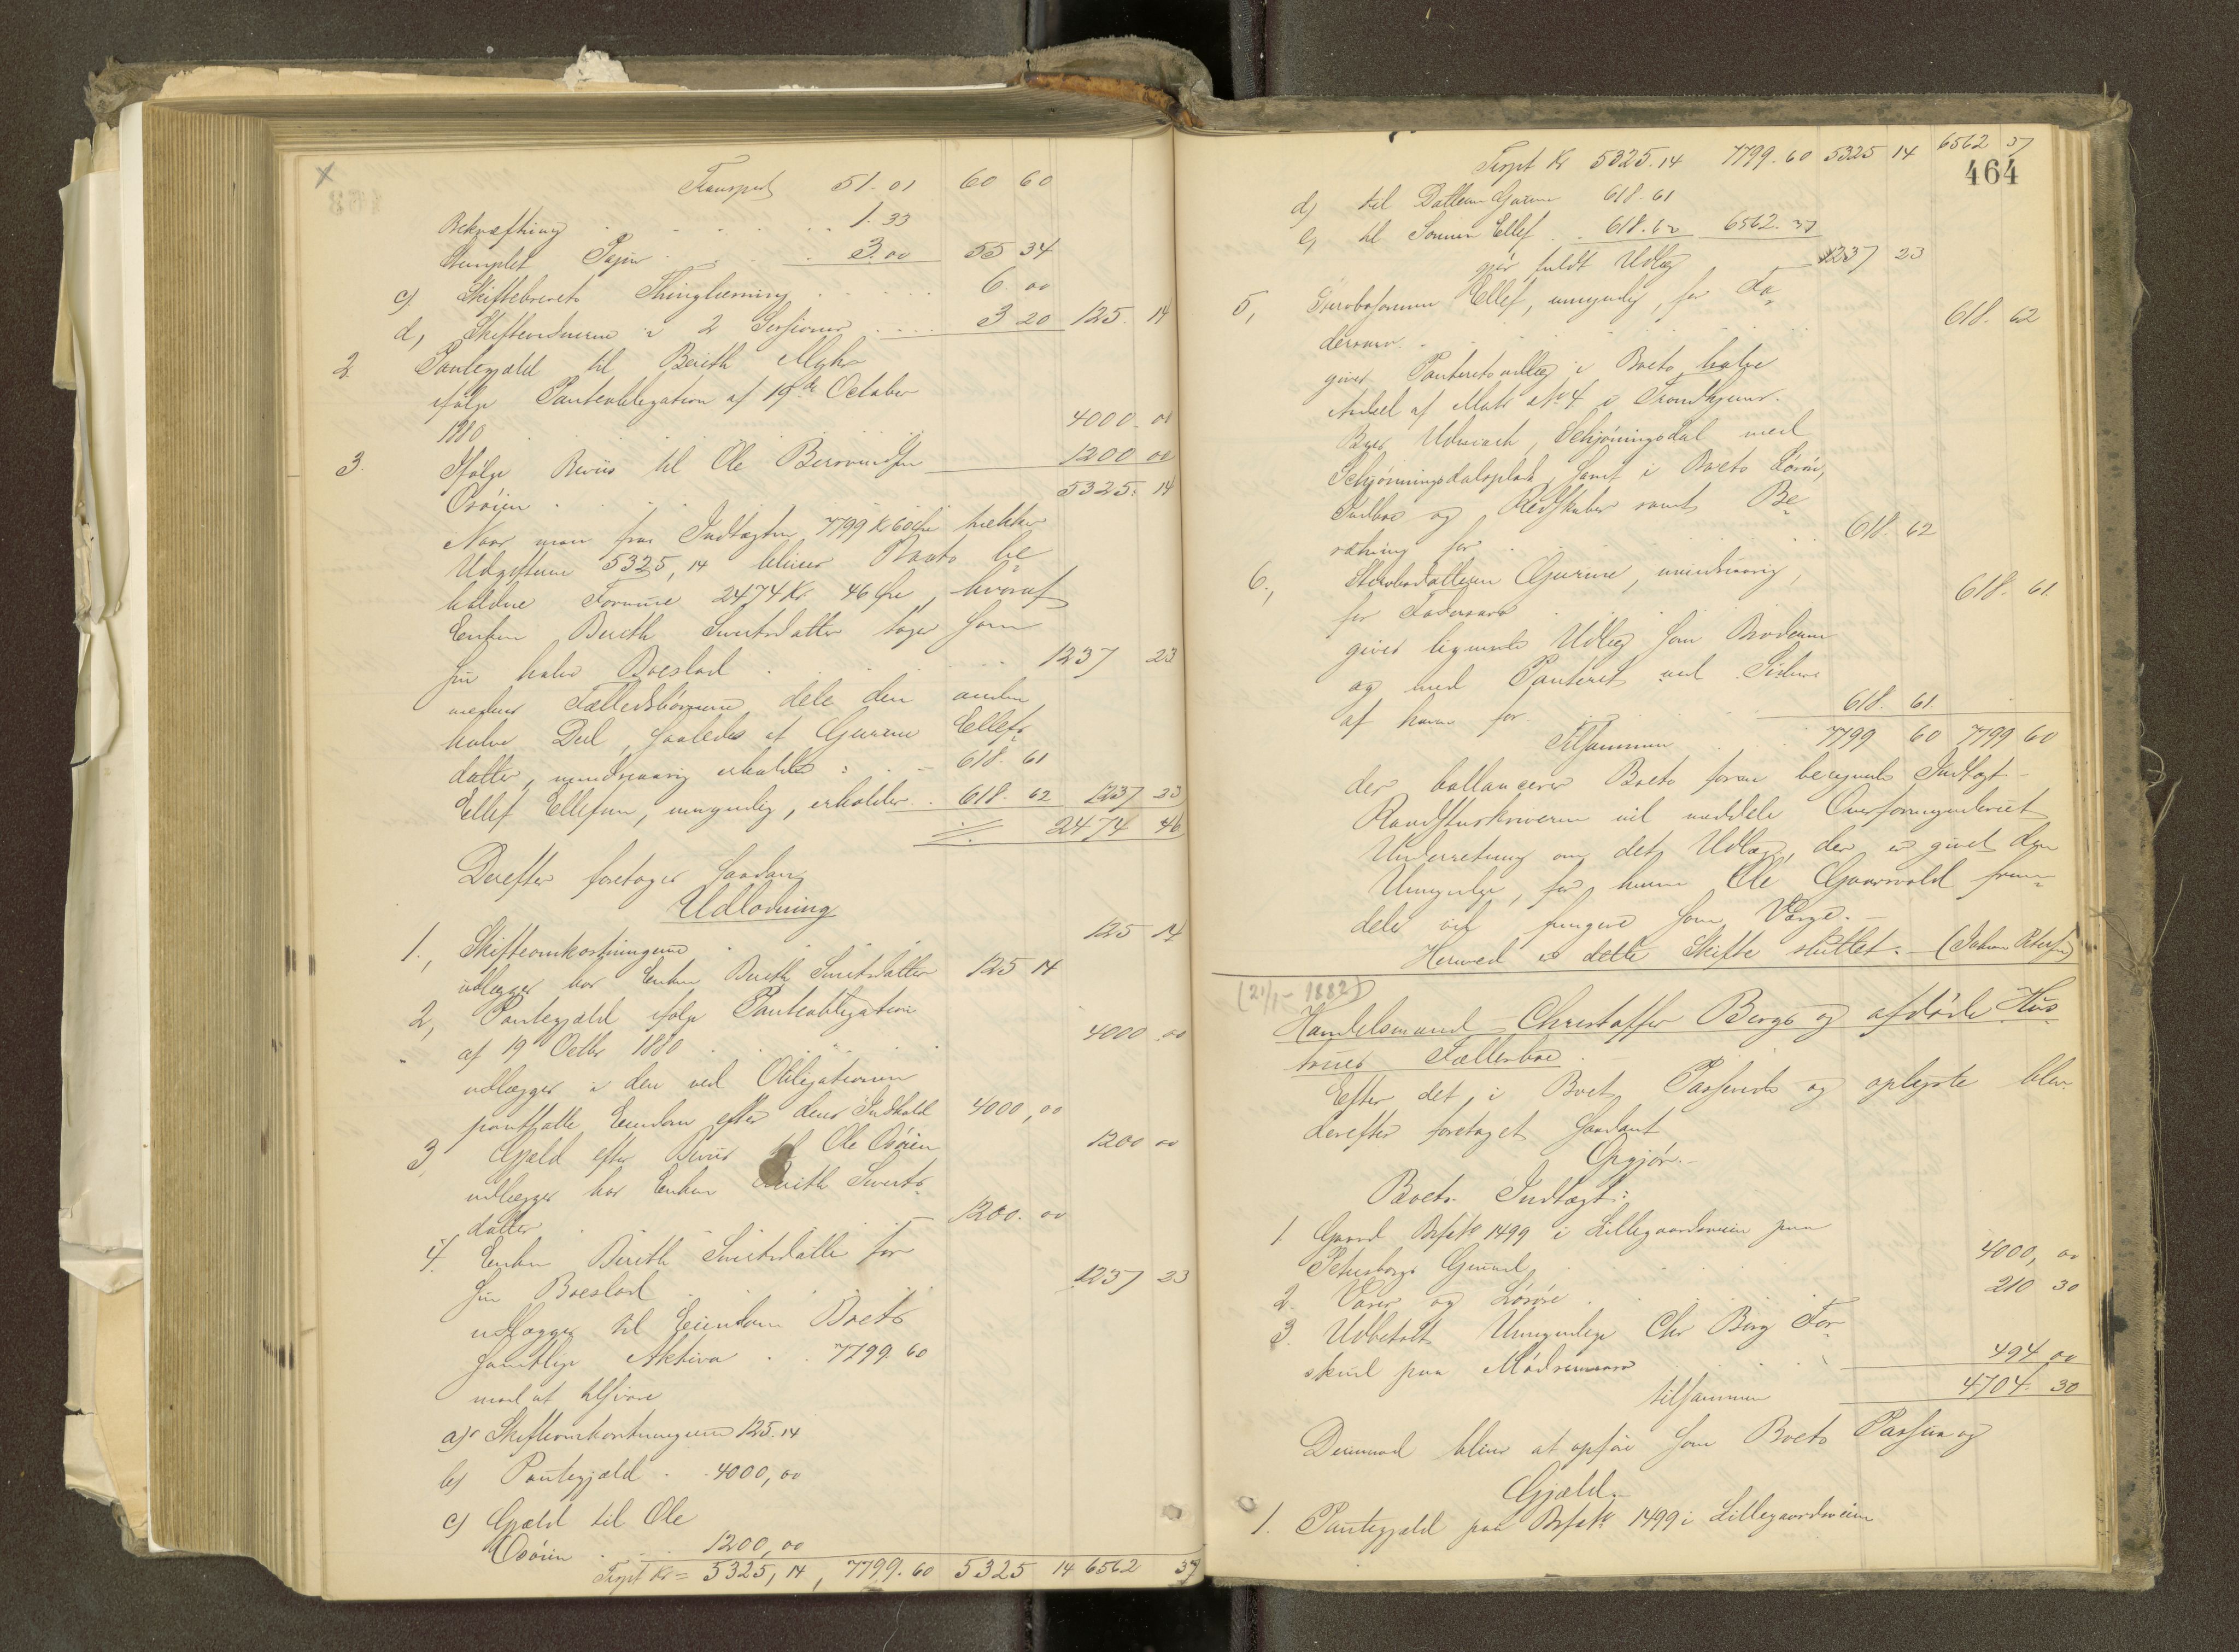 Transport 51.01 60 60
Bekræftning . . . . 1.33
Stemplet Papir . . . 3.00 55 34
c) Skiftebrevets Thinglæsning . . . . 6.00
d, Skifteordnerne i 2 Sessioner . . . . 3 20 125. 14
2. Pantegjæld til Berith Myhr
ifølge Panteobligation af 19de October
1880 . . . . . . 4000.00
3. Ifølge Beviis til Ole 1200 00
Osøien . . . . . 5325. 14
Naar man fra Indtægten 7799 Kr 60 Øre trækker
Udgifterne 5325,14 bliver Boets be-
holdne Formue 2474 Kr. 46 Øre, hvoraf
Enken Berith Sivertsdatter tager som
sin halve Boeslod . . . . 1237 23
medens Fælledsbørnene dele den anden
halve Deel, saaledes at Gurine Ellefs-
datter, umindreaarig erholder : . . - 618. 61
Ellef Ellefsen, umyndig, erholder . . 618. 62 1237 23
2474 46
Derefter foretages saadan
Udlodning
1., Skifteomkostningerne . . . 125 14
udlægges hos Enken Berith Sivertsdatter 125 14
2, Pantegjæld ifølge Panteobligation
af 19 Octbr 1880 . . . . . 4000.00
udlægges i den ved Obligationen
pantsatte Eiendom efter dens Indhold 4000,00
3, Gjæld efter Beviis til Ole Osøien 1200 00
udlægges hos Enken Berith Siverts-
datter . . . . 1200.00
4. Enken Berith Sivertsdatter for
sin Boeslod . . . . 1237 23
udlægges til Eiendom Boets
samtlige Aktiva . . 7799.60
mod at tilsvare
a) Skifteomkostningerne 125.14
b) Pantegjæld . . 4000,00
c) Gjæld til Ole
Osøien . . . 1200,00
Trspt Kr = 5325,14, 7799.60 5325 14 6562 37
464
Trspt Kr 5325.14 7799.60 5325 14 6562 37
d) til Datteren Gurine 618.61
e) til Sønnen Ellef . . 618.62 6562.37
gjør fuldt Udlæg 1237 23
5, Ellef, umyndig, for Fa-
dersarv . . . . . . 618. 62
gives Panteretsudlæg i Boets halve
Andeel af Matr No 4 i Trondhjems
Byes Udmark, Schjøningsdal med
Schjønningsdalsplads samt i Boets Løsøre,
Indboe og Redskaber samt Be-
sætning for . . . . . 618. 62
6., Sterbodatteren Gurine, umindreaarig,
for Fadersarv . . . . 618. 61.
gives lignende Udlæg som Broderen
og med Panteret ved Siden
af ham for . . . . 618. 61.
Tilsammen . . . 7799 60 7799 60
der ballancerer Boets foran beregnede Indtægt
Raadstuskriveren vil meddele Overformynderiet
Underretning om det Udlæg, der er givet den
Umyndige, for hvem Ole Gaarvold frem-
deles vil fungere som Værge.—
Hermed er dette Skifte sluttet.— (Johan Petersen)
(21/1 - 1882)
Handelsmand Christoffer Bergs og afdøde Hus-
trues Fællesboe.
Efter det, i Boet, Passerede og oplyste blev
derefter foretaget saadant
Opgjør.—
Boets Indtægt:
1 Gaard Brfst 1499 i Lillegaardsveien paa
Petersborgs Grund . . . . 4000,00
2. Varer og Løsøre . . . . 210 30
3. Udbetalt Umyndige Chr Berg For-
skud paa Mødrenearv . . . . 494 00
tilsammen 4704. 30
Derimod bliver at opføre som Boets Passiva og
Gjæld.—
1. Pantegjæld paa Brfst 1499 i Lillegaardsveien